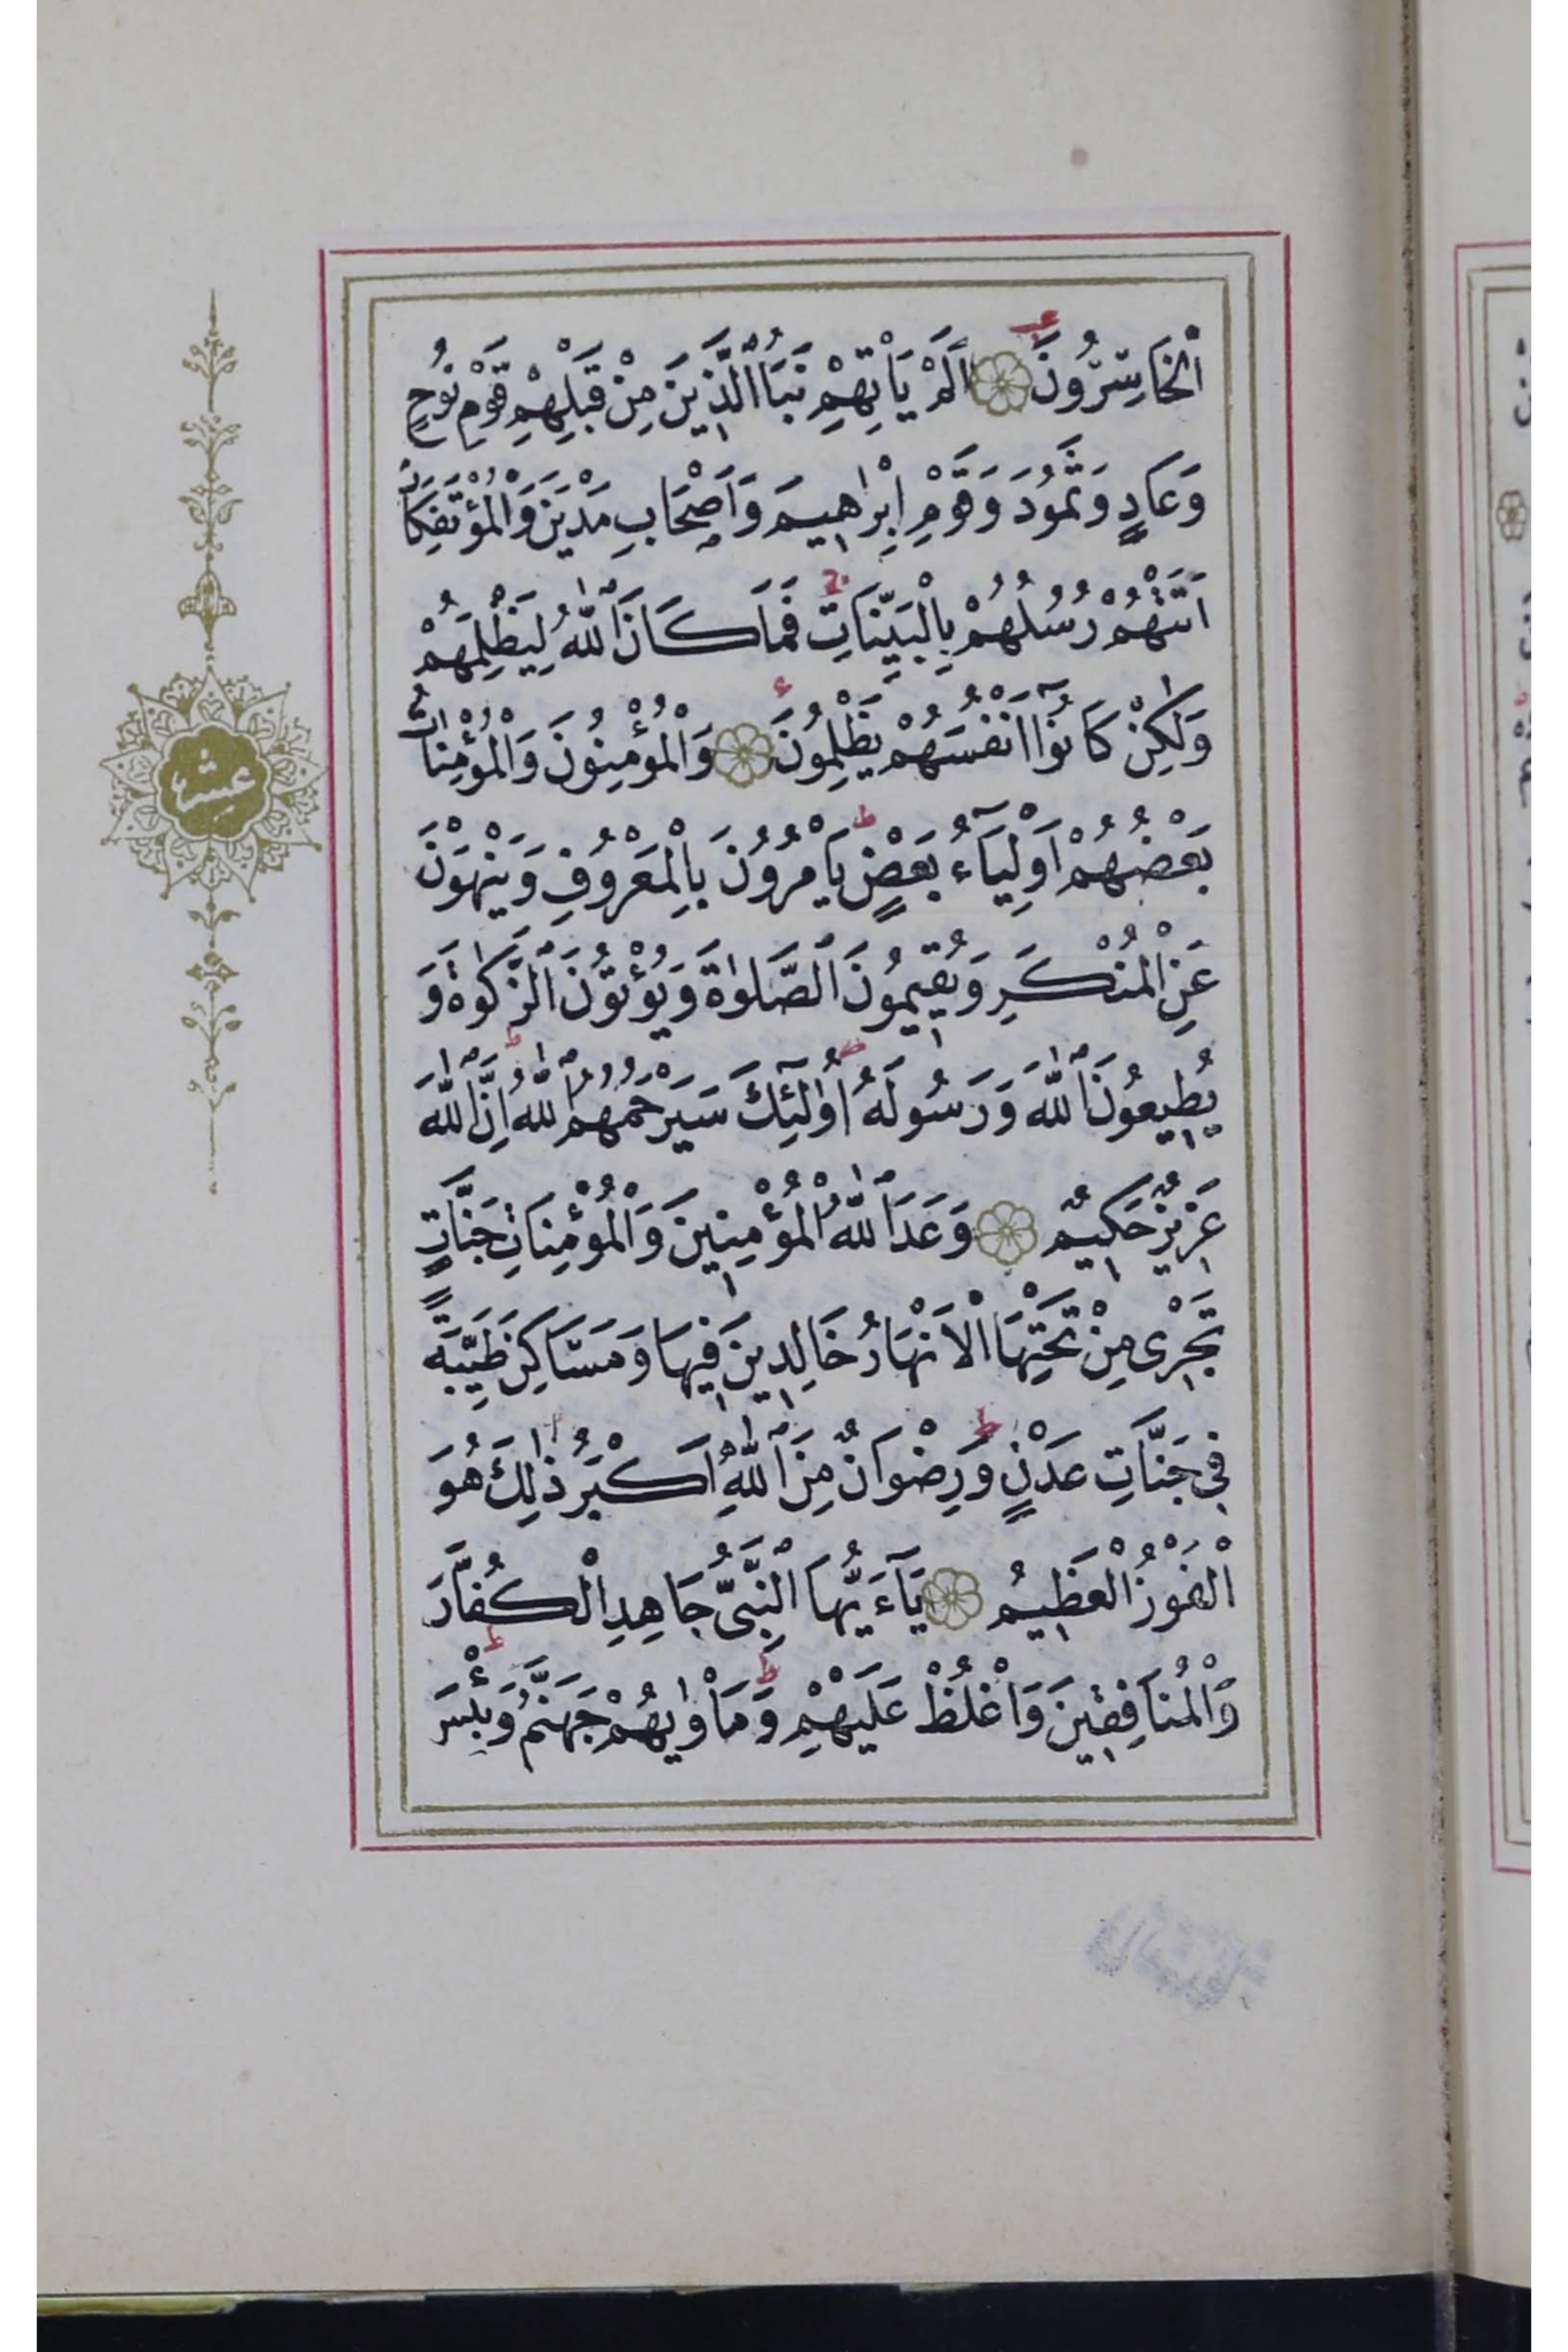 اَلْخَاسِرُونَ اَلَمْ يَأْتِهِمْ نَبَأُ الَّذِينَ مِنْ قَبْلِهِمْ قَوْمِ نُوحٍ
وَعَادٍ وَثَمُودَ وَقَوْمِ اِبْرٰهِيمَ وَاَصْحَابِ مَدْيَنَ وَالْمُؤْتَفِكَاتِ
اَتَتْهُمْ رُسُلُهُمْ بِالْبَيِّنَاتِ فَمَا كَانَ اللّٰهُ لِيَظْلِمَهُمْ
وَلٰكِنْ كَانُوٓا اَنْفُسَهُمْ يَظْلِمُونَ وَالْمُؤْمِنُونَ وَالْمُؤْمِنَاتُ
بَعْضُهُمْ اَوْلِيَآءُ بَعْضٍ يَأْمُرُونَ بِالْمَعْرُوفِ وَيَنْهَوْنَ
عَنِ الْمُنْكَرِ وَيُقِيمُونَ الصَّلَوٰةَ وَيُؤْتُونَ الزَّكَوٰةَ وَ
يُطِيعُونَ اللّٰهَ وَرَسُولَهُ اُو۬لٰٓئِكَ سَيَرْحَمُهُمُ اللّٰهُ اِنَّ اللّٰهَ
عَزِيزٌ حَكِيمٌ وَعَدَ اللّٰهُ الْمُؤْمِنِينَ وَالْمُؤْمِنَاتِ جَنَّاتٍ
تَجْرِى مِنْ تَحْتِهَا الْاَنْهَارُ خَالِدِينَ فِيهَا وَمَسَاكِنَ طَيِّبَةً
فِى جَنَّاتِ عَدْنٍ وَرِضْوَانٌ مِنَ اللّٰهِ اَكْبَرُ ذٰلِكَ هُوَ
الْفَوْزُ الْعَظِيمُ يَآءَيُّهَا النَّبِىُّ جَاهِدِ الْكُفَّارَ
وَالْمُنَافِقِينَ وَاغْلُظْ عَلَيْهِمْ وَمَأْوٰيهُمْ جَهَنَّمُ وَبِئْسَ
عشر